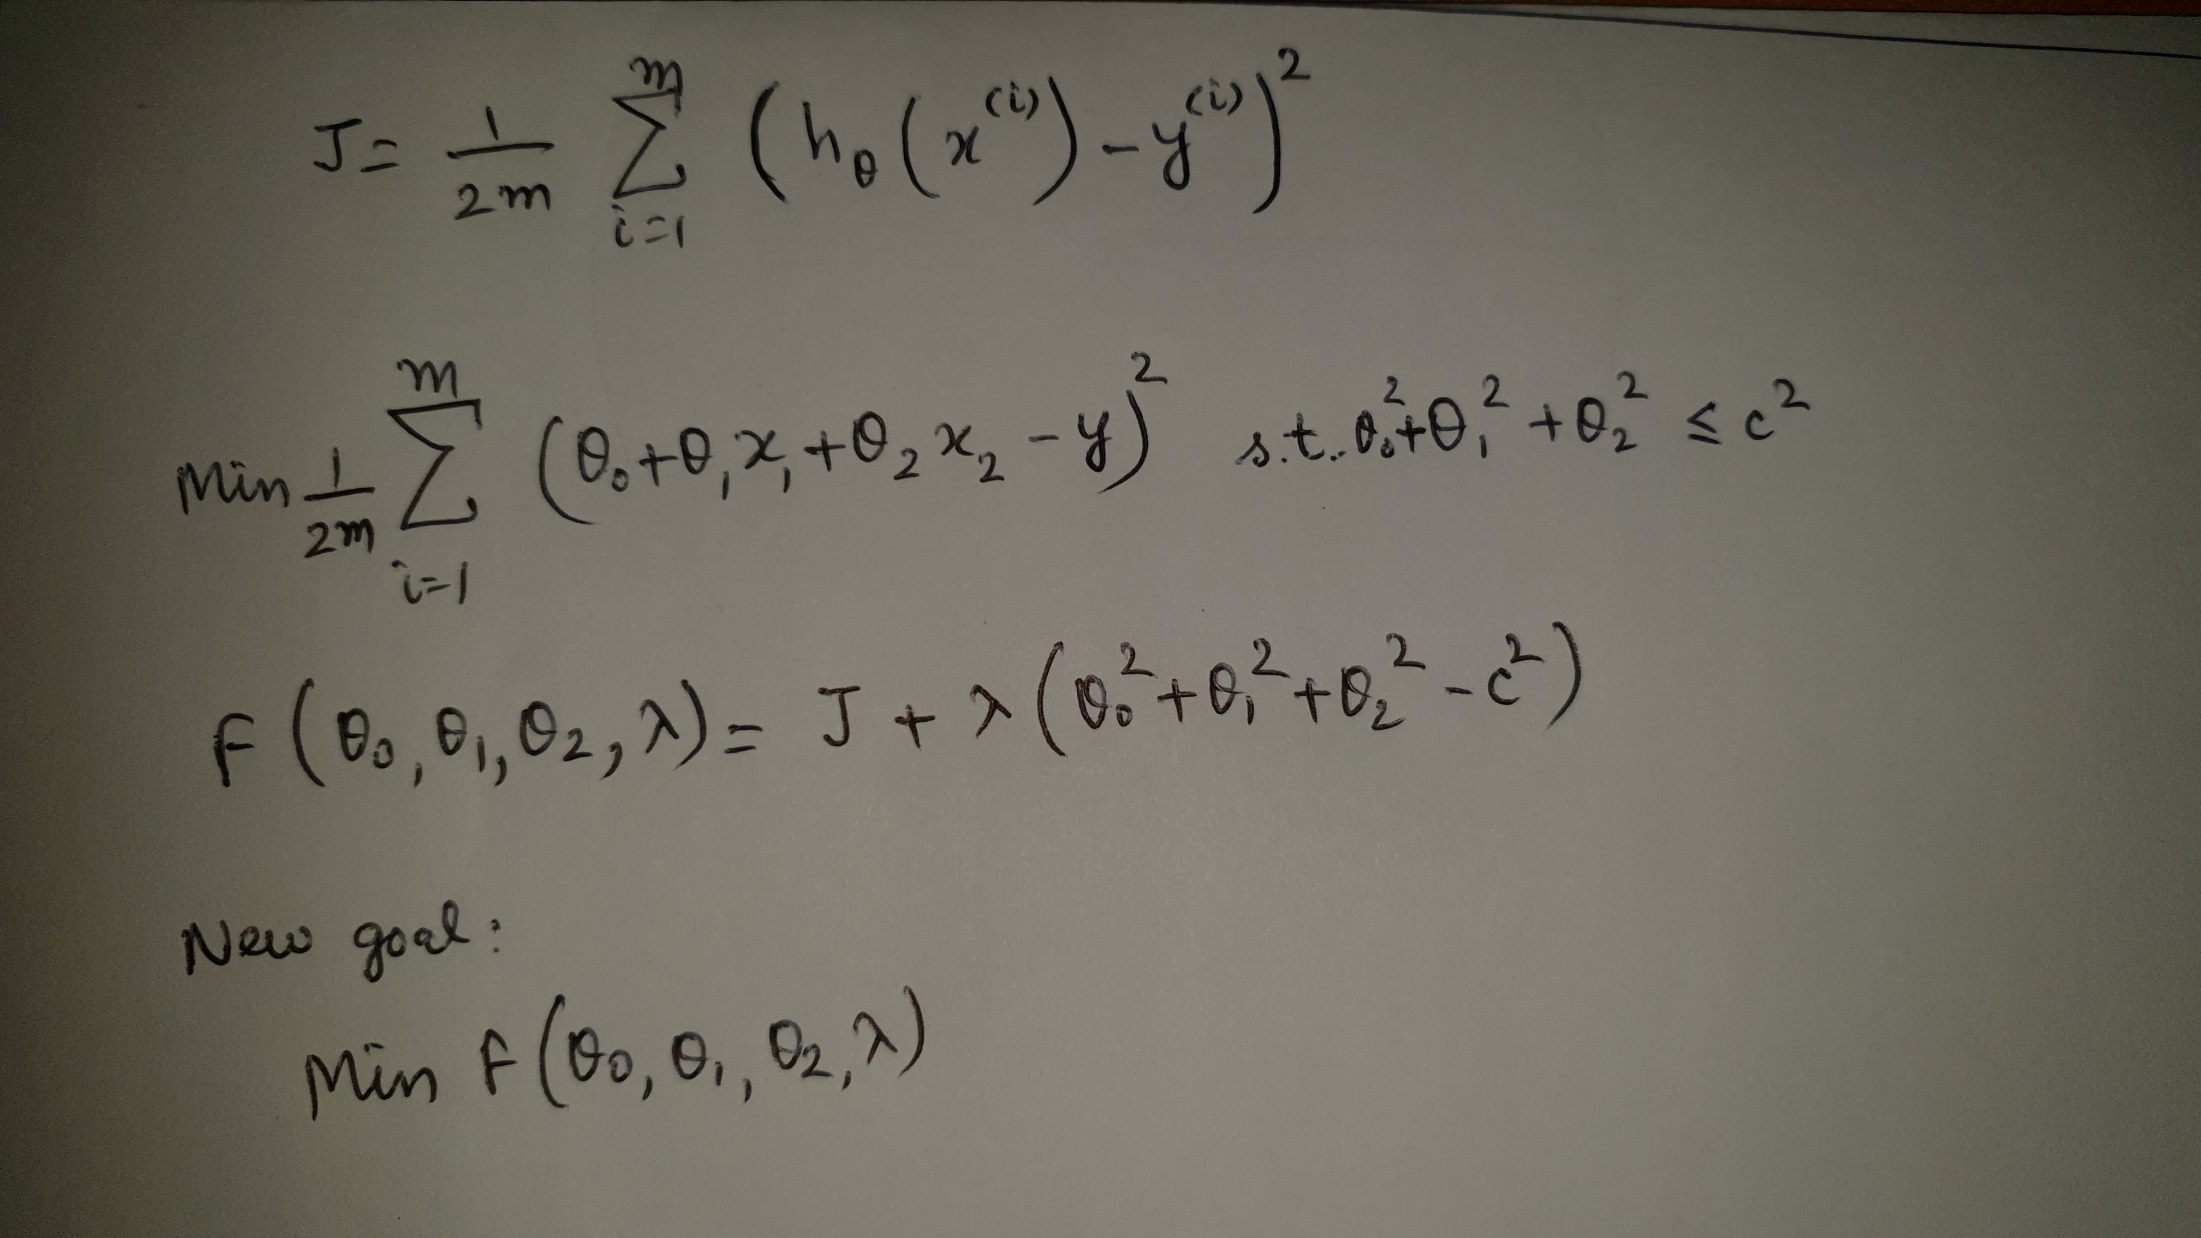 J = \frac{1}{2m} \sum_{i=1}^{m} (h_θ(x^{(i)}) - y^{(i)})^2
Min \frac{1}{2m} \sum_{i=1}^{m} (θ_0 + θ_1 x_1 + θ_2 x_2 - y)^2 s.t. θ_0^2 + θ_1^2 + θ_2^2 ≤ c^2
F(θ_0, θ_1, θ_2, λ) = J + λ(θ_0^2 + θ_1^2 + θ_2^2 - c^2)
New goal:
Min F(θ_0, θ_1, θ_2, λ)